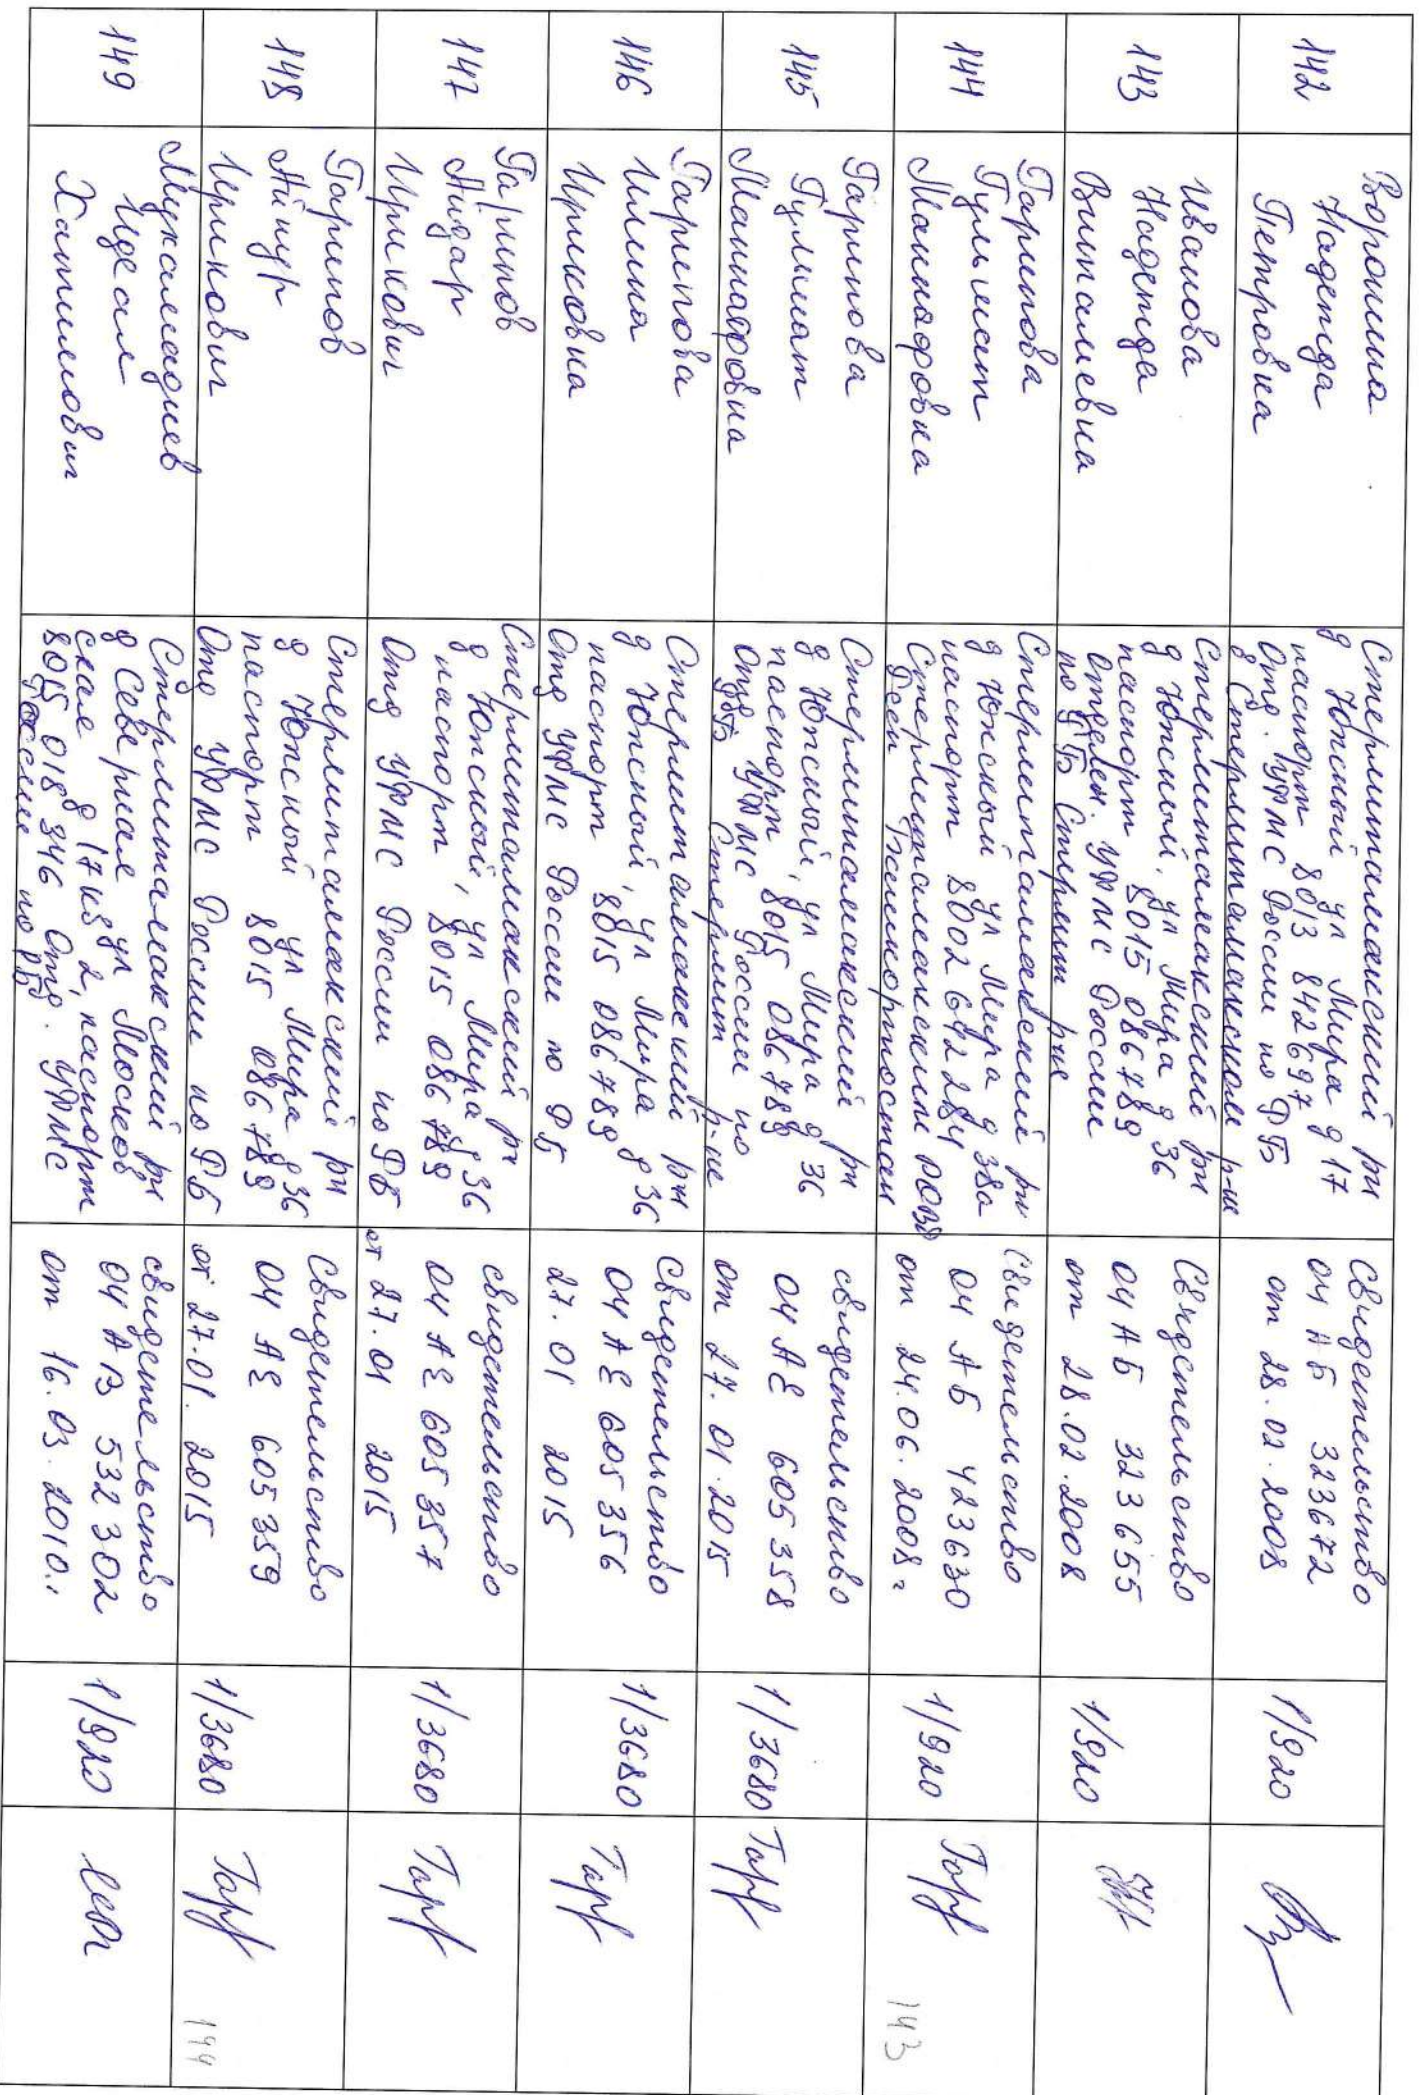 142
Воронина
Надежда
Петровна
Стерлитамакский рн
д Южный ул Мира д 17
паспорт 8013 842697
Отд. УФМС России по РБ
в Стерлитамакском р-не
Свидетельство
04 АБ 323672
от 28.02.2008
1/920
143
Иванова
Надежда
Виталиевна
Стерлитамакский рн
д Южный, ул Мира д 36
паспорт 8015 086789
Отделен. УФМС России
по РБ Стерлит р-не
Свидетельство
04 АБ 323655
от 28.02.2008
1/920
144
Гарипова
Гульшат
Маннафовна
Стерлитамакский рн
д Южный ул Мира д 38а
паспорт 8002 642284
Стерлитамакским РОВД
Респ Башкортостан
Свидетельство
04 АБ 423630
от 24.06.2008г
1/920
Гарф
143
145
Гарипова
Гульшат
Маннафовна
Стерлитамакский рн
д Южный, ул Мира д 36
паспорт 8015 086788
Отд УФМС России по
РБ Стерлит р-не
свидетельство
04 АЕ 605358
от 27.01.2015
1/3680
Гарф
146
Гарипова
Илина
Ириковна
Стерлитамакский рн
д Южный, ул Мира д 36
паспорт 8015 086789
Отд УФМС России по РБ
Свидетельство
04 АЕ 605356
27.01 2015
1/3680
Гарф
147
Гарипов
Айдар
Ирикович
Стерлитамакский рн
д Южный, ул Мира д 36
паспорт 8015 086789
Отд УФМС России по РБ
свидетельство
04 АЕ 605357
от 27.01 2015
1/3680
Гарф
148
Гарипов
Айнур
Ирикович
Стерлитамакский рн
д Южный ул Мира д 36
паспорт 8015 086789
Отд УФМС России по РБ
Свидетельство
04 АЕ 605359
от 27.01.2015
1/3680
Гарф
144
149
Мухамадиев
Идеал
Хатипович
Стерлитамакский рн
д Северная ул Москов
ская д 17 кв 2, паспорт
8015 018346 Отд. УФМС
России по РБ
свидетельство
04 АВ 532302
от 16.03.2010..
1/920